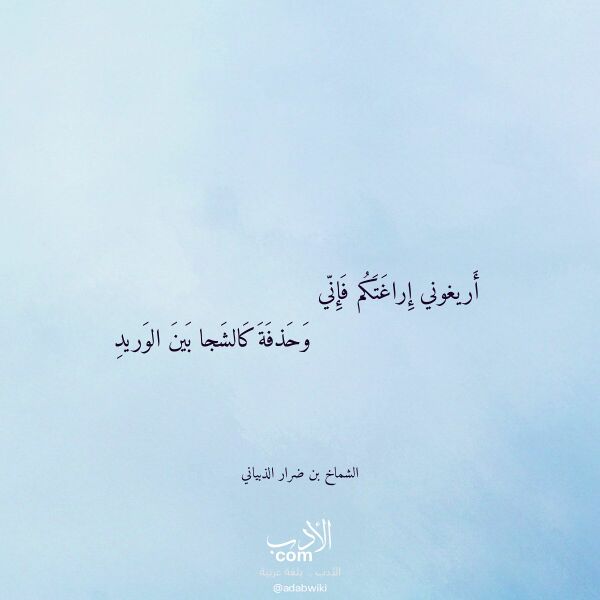 أَريغوني إِراغَتَكُم فَإِنّي
وَحَذفَةَ كَالشَجا بَينَ الوَريدِ
الشماخ بن ضرار الذبياني
الأدب
com
الأدب .. بلغة عربية
@adabwiki